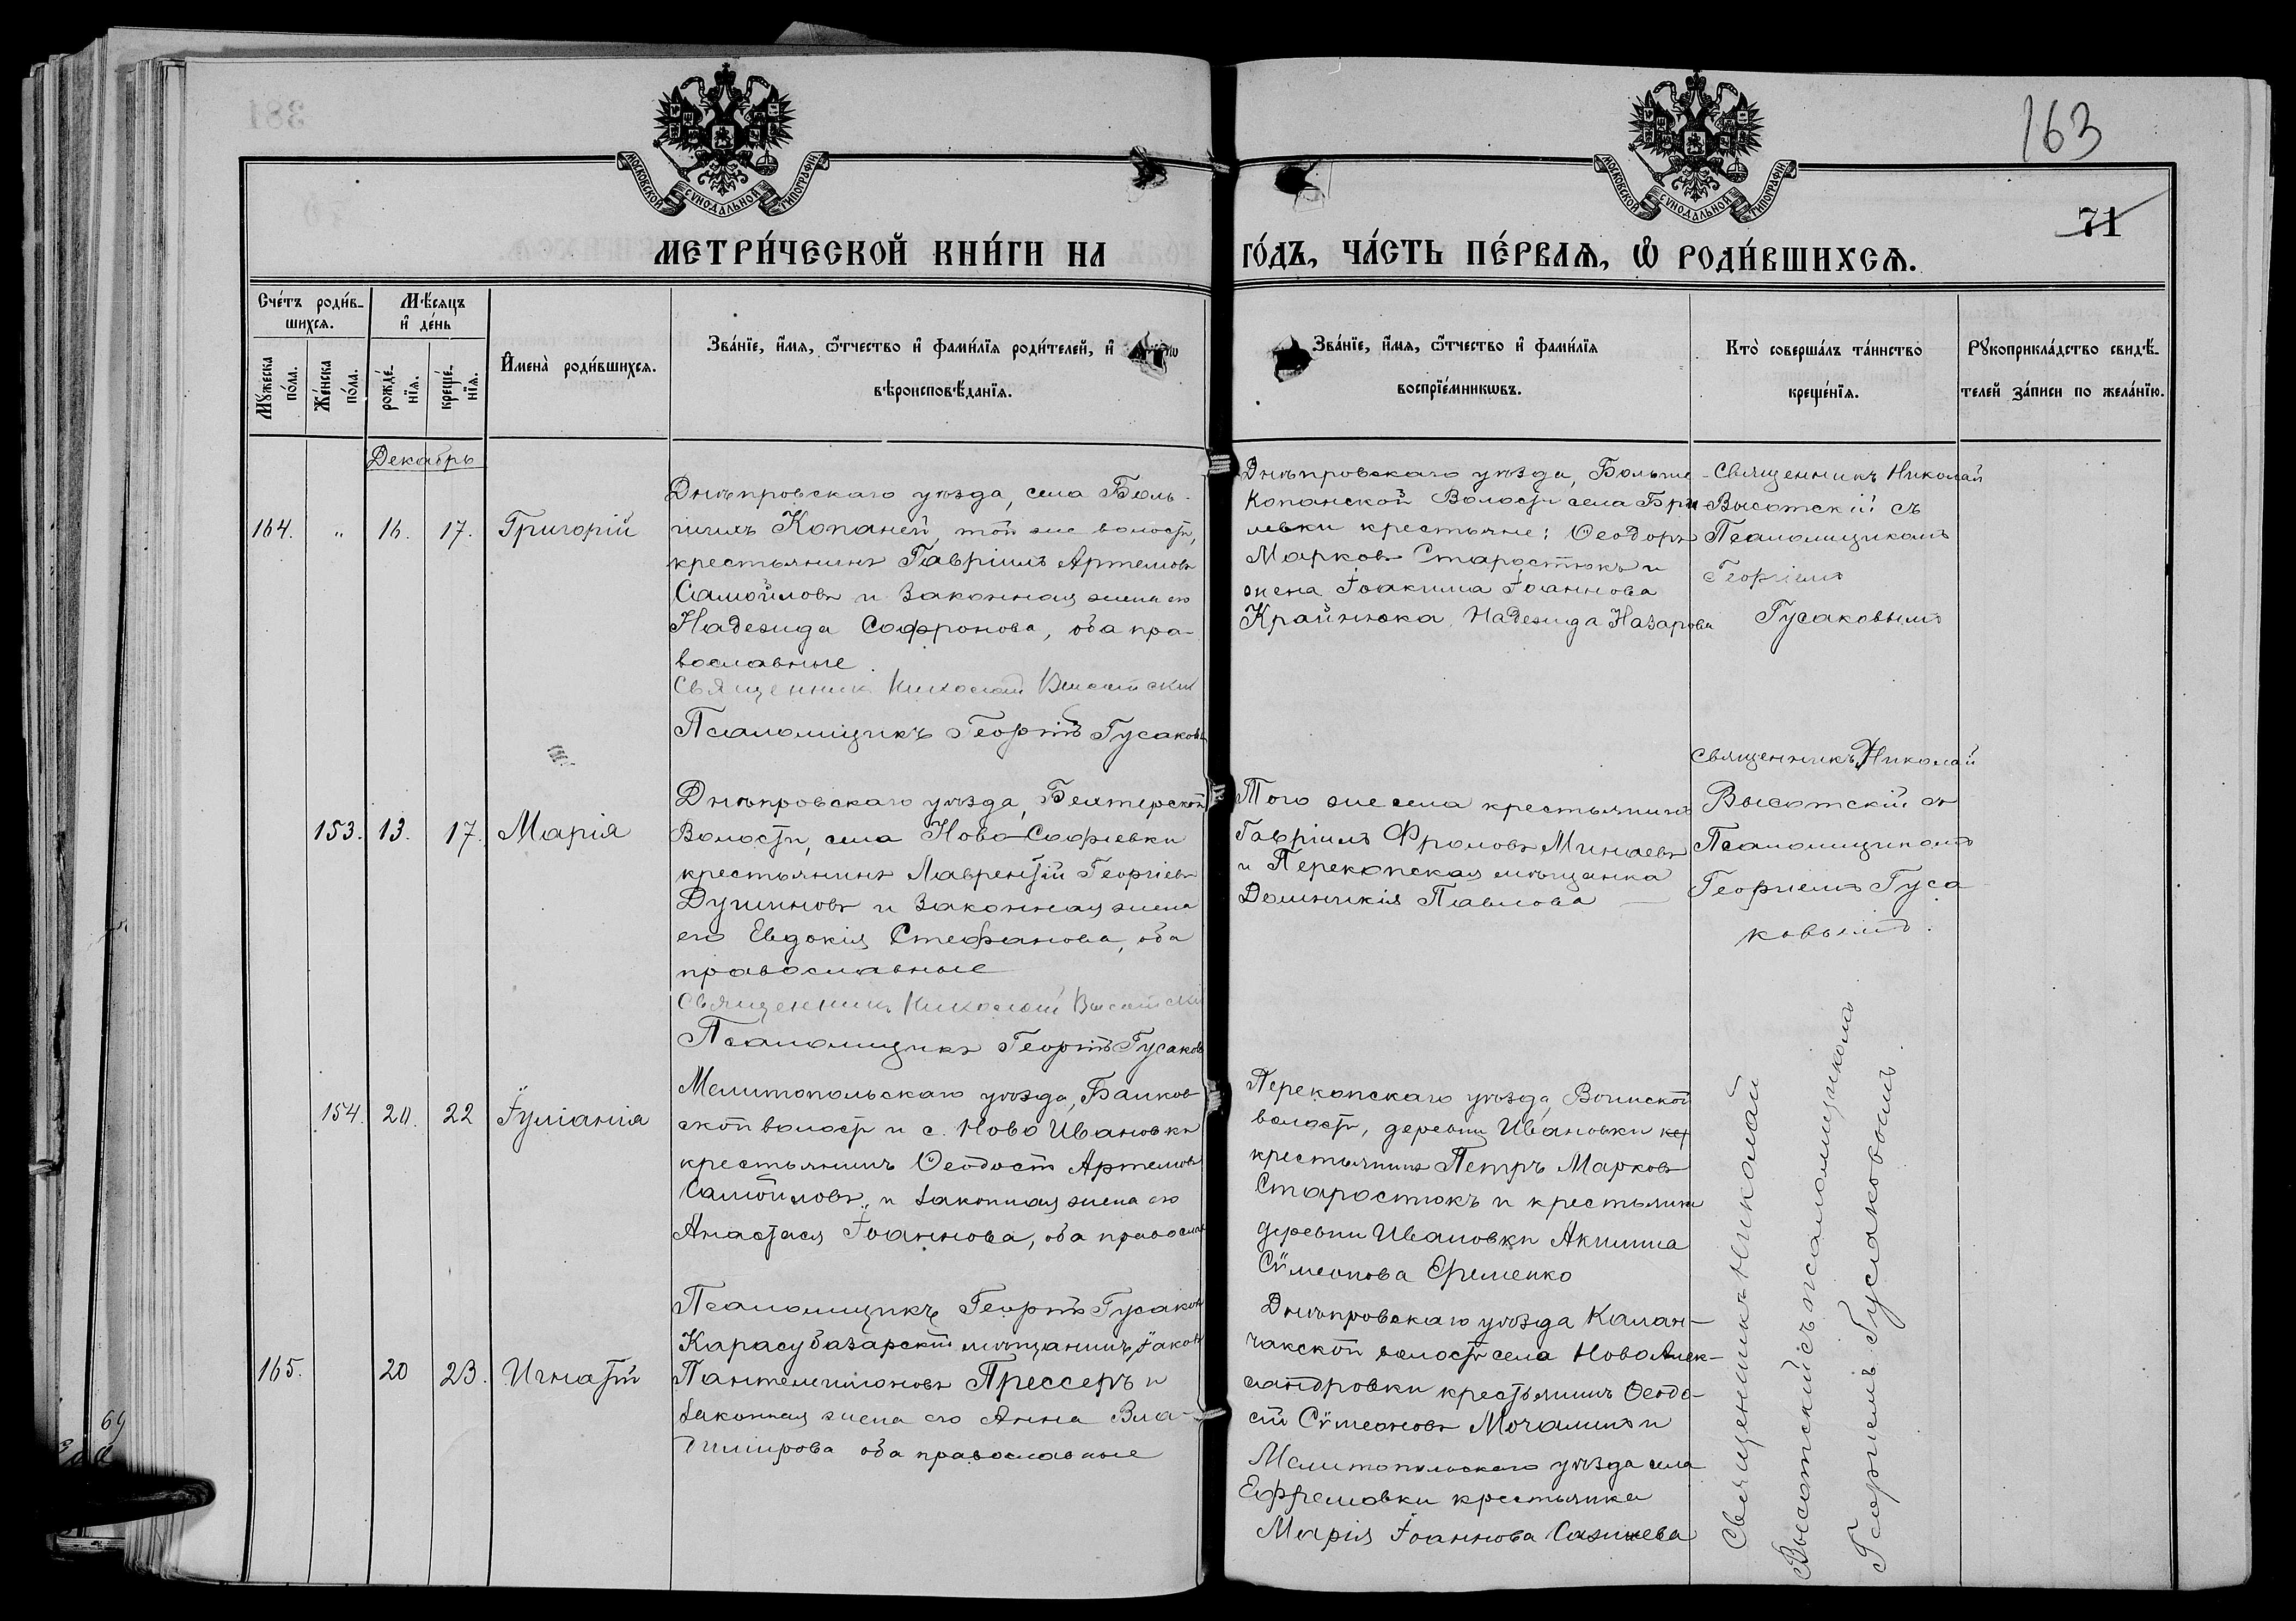 163
71
МОСКОВСКОЙ СѴНОДАЛЬНОЙ ТИПОГРАФІИ
МОСКОВСКОЙ СѴНОДАЛЬНОЙ ТИПОГРАФІИ
МЕТРИ́ЧЕСКОЙ КНИ́ГИ НА ГО́ДЪ, ЧА́СТЬ ПЕ́РВАѦ, Ѡ҆ РОДИ́ВШИХСѦ.
Сче́тъ роди́в-
шихсѧ.
Мꙋ́жеска по́ла.
Же́нска по́ла.
Мѣ́сѧцъ
и҆ де́нь
рожде́-
нїѧ.
креще́-
нїѧ.
И҆мена̀ роди́вшихсѧ.
Зва́нїе, и҆́мѧ, ѻ҆́тчество и҆ фами́лїѧ роди́телей, и҆
вѣроисповѣ́данїѧ.
Зва́нїе, и҆́мѧ, ѻ҆́тчество и҆ фами́лїѧ
воспрїе́мникѡвъ.
Кто̀ соверша́лъ та́инство
креще́нїѧ.
Рꙋкоприкла́дство свидѣ́-
телей за́писи по жела́нїю.
Декабрь
164. " 16. 17. Григорій
Днѣпровскаго уѣзда, села Боль-
шихъ Копаней, той же волости,
крестьянинъ Гавріилъ Артемовъ
Самойловъ и законная жена его
Надежда Софронова, оба пра-
вославные
Священникъ Николай Высотскій
Псаломщикъ Георгій Гусаковъ
Днѣпровскаго уѣзда, Больше-
Копанской Волости села Бри
левки крестьяне: Ѳеодоръ
Марковъ Старостюкъ и
жена Іоакима Іоаннова
Крайнюка Надежда Назарова
Священникъ Николай
Высотскій съ
Псаломщикомъ
Георгіемъ
Гусаковымъ
153. 13. 17. Марія
Днѣпровскаго уѣзда, Бехтерской
Волости, села Ново-Софіевки
крестьянинъ Лаврентій Георгіевъ
Душиновъ и законная жена
его Евдокія Стефанова, оба
православные
Священникъ Николай Высотскій
Псаломщикъ Георгій Гусаковъ
Того же села крестьянинъ
Гавріилъ Фроловъ Минаевъ
и Перекопская мѣщанка
Домникія Павлова
Священникъ Николай
Высотскій съ
Псаломщикомъ
Георгіемъ Гуса
ковымъ.
154. 20. 22 Іуліанія
Мелитопольскаго уѣзда, Балков
ской волости и с. Ново Ивановки
крестьянинъ Ѳеодосій Артемовъ
Самойловъ, и законная жена его
Анастасія Іоаннова, оба православ
Псаломщикъ Георгій Гусаковъ
Перекопскаго уѣзда, Воинской
волости, деревни Ивановки
крестьянинъ Петръ Марковъ
Старостюкъ и крестьянка
деревни Ивановки Акилина
Сѵмеонова Еременко
165. 20 23. Игнатій
Карасубазарскій мѣщанинъ Іаковъ
Пантелеимоновъ Прессеръ и
законная жена его Анна Вла-
димирова оба православные
Днѣпровскаго уѣзда Калан-
чакской волости села Ново Алек-
сандровки крестьянинъ Ѳеодо-
сій Сѵмеоновъ Мочалинъ и
Мелитопольскаго уѣзда села
Ефремовки крестьянка
Марія Іоаннова Сазинева
Священникъ Николай
Высотскій съ псаломщикомъ
Георгіемъ Гусаковымъ.
69